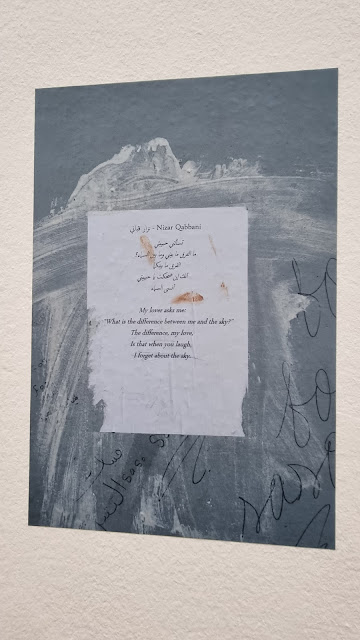 نزار قباني - Nizar Qabbani
تسألني حبيبتي
ما الفرق ما بيني وما بين السماء؟
الفرق ما بينكما
أنك إن ضحكت يا حبيبتي
أنسى السماء
My lover asks me:
"What is the difference between me and the sky?"
The difference, my love,
Is that when you laugh,
I forget about the sky.